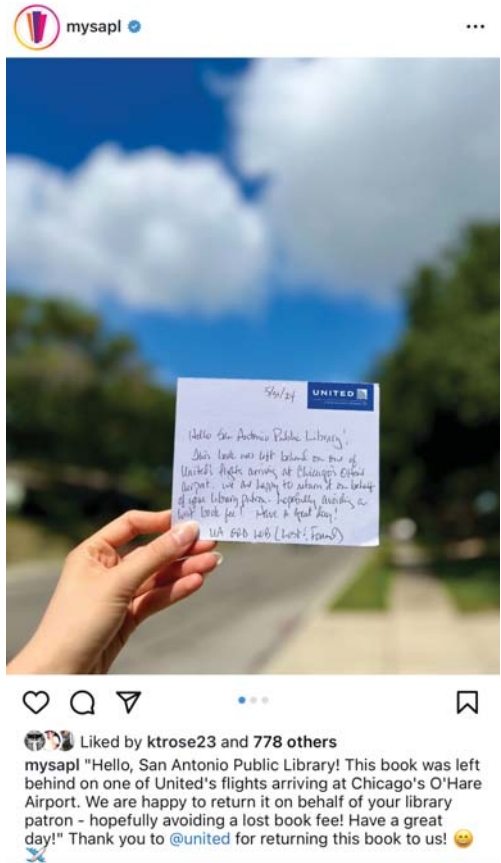 mysapl
5/31/24
UNITED
Hello San Antonio Public Library!
This book was left behind on one of
United's flights arriving at Chicago's O'Hare
Airport. We are happy to return it on behalf
of your library patron - hopefully avoiding a
lost book fee! Have a great day!
(Lost & Found)
Liked by ktrose23 and 778 others
mysapl "Hello, San Antonio Public Library! This book was left
behind on one of United's flights arriving at Chicago's O'Hare
Airport. We are happy to return it on behalf of your library
patron - hopefully avoiding a lost book fee! Have a great
day!" Thank you to @united for returning this book to us! 😀
✈️